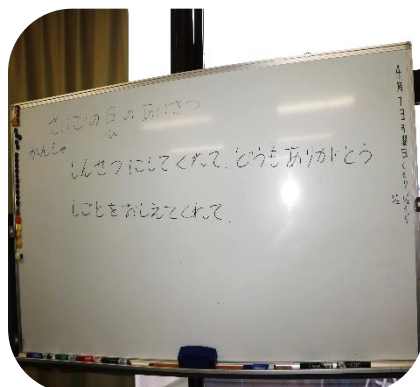 さいごの日のあいさつ
かんしゃ
しんせつにしてくれて、どうもありがとう
しごとをおしえてくれて、
4月7日月曜日